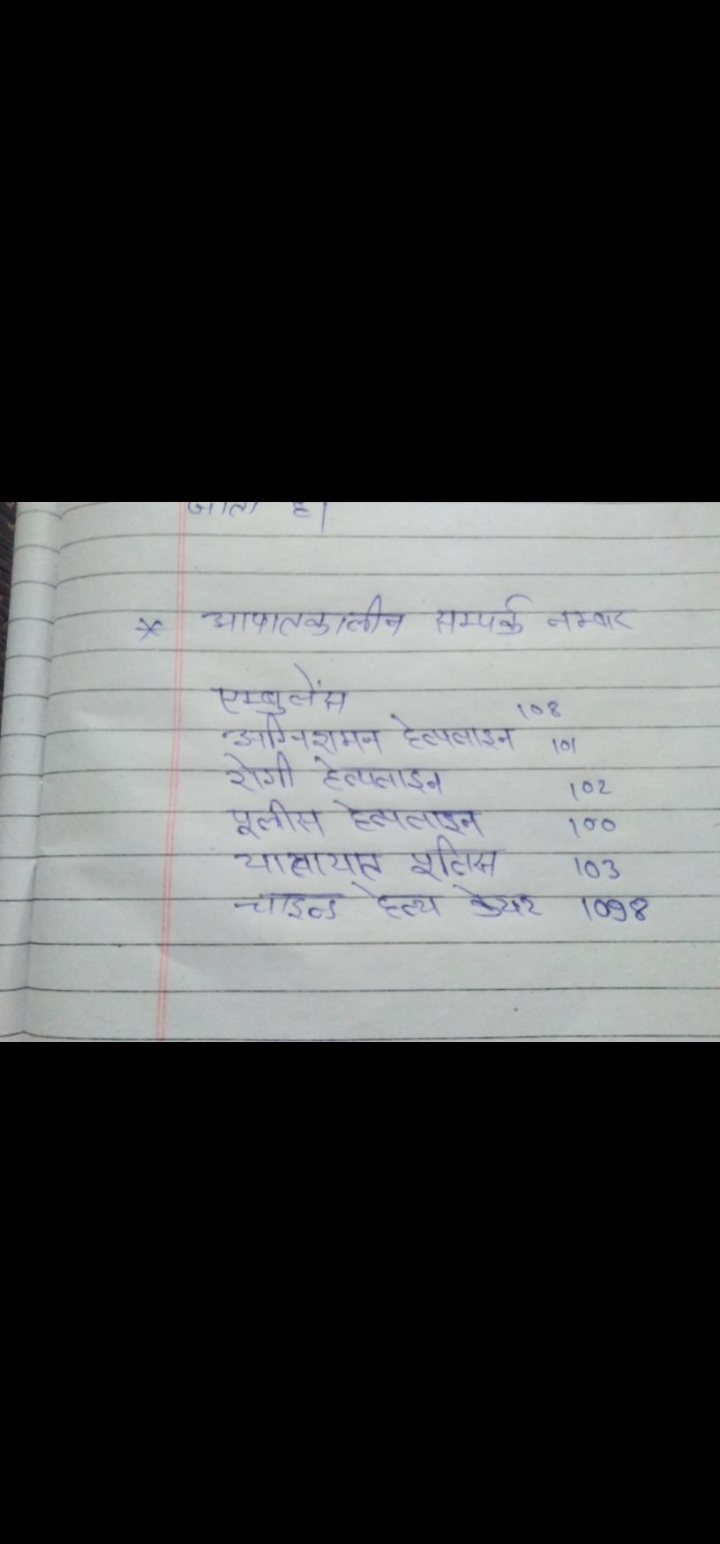 जाता है।
* आपातकालीन सम्पर्क नम्बर
एम्बुलेंस 108
अग्निशमन हेल्पलाइन 101
रोगी हेल्पलाइन 102
पूलीस हेल्पलाइन 100
यातायात पुलिस 103
चाइल्ड हेल्थ केयर 1098